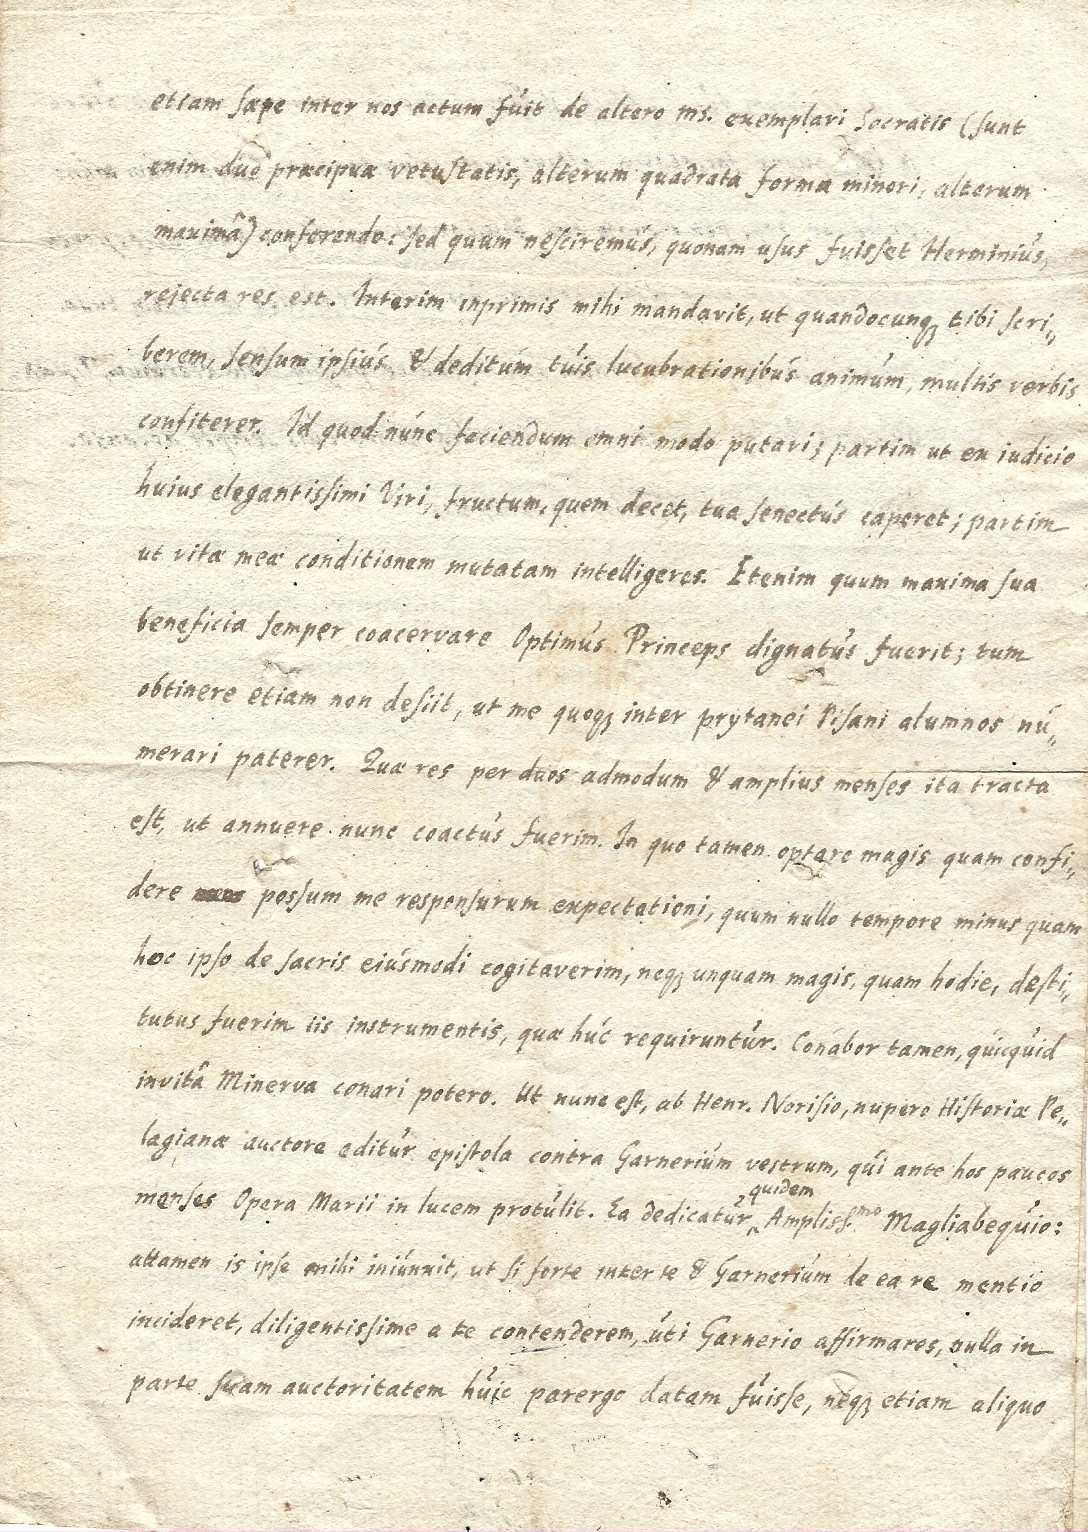 etiam sæpe inter nos actum fuit de altero ms. exemplari Socratis (sunt
enim duo præcipuæ vetustatis, alterum quadrata forma minori, alterum
maximâ) conferendo: sed quum nesciremus, quonam usus fuisset Herminius,
rejecta res est. Interim inprimis mihi mandavit, ut quandocunq; tibi scri„
berem, sensum ipsius & deditum tuis lucubrationibus animum, multis verbis
confiterer. Id quod nunc faciendum omni modo putavi; partim ut ex iudicio
huius elegantissimi Viri, fructum, quem decet, tua senectus caperet; partim
ut vitæ meæ conditionem mutatam intelligeres. Etenim quum maxima sua
beneficia semper coacervare Optimus Princeps dignatus fuerit; tum
obtinere etiam non desiit, ut me quoq; inter prytanei Pisani alumnos nu„
merari paterer. Quæ res per duos admodum & amplius menses ita tracta
est, ut annuere nunc coactus fuerim. In quo tamen optare magis quam confi„
dere possum me responsurum expectationi, quum nullo tempore minus quam
hoc ipso de sacris eiusmodi cogitaverim, neq; unquam magis, quam hodie, desti„
tutus fuerim iis instrumentis, quæ huc requiruntur. Conabor tamen, quicquid
invitâ Minerva conari potero. Ut nunc est, ab Henr. Norisio, nupero Historiæ Pe„
lagianæ auctore editur epistola contra Garnerium vestrum, qui ante hos paucos
menses Opera Marii in lucem protulit. Ea dedicatur quidem Ampliss.mo Magliabequio:
attamen is ipse mihi iniunxit, ut si forte inter te & Garnerium de ea re mentio
incideret, diligentissime a te contenderem, uti Garnerio affirmares, nulla in
parte suam auctoritatem huic parergo datam fuisse, neq; etiam aliquo